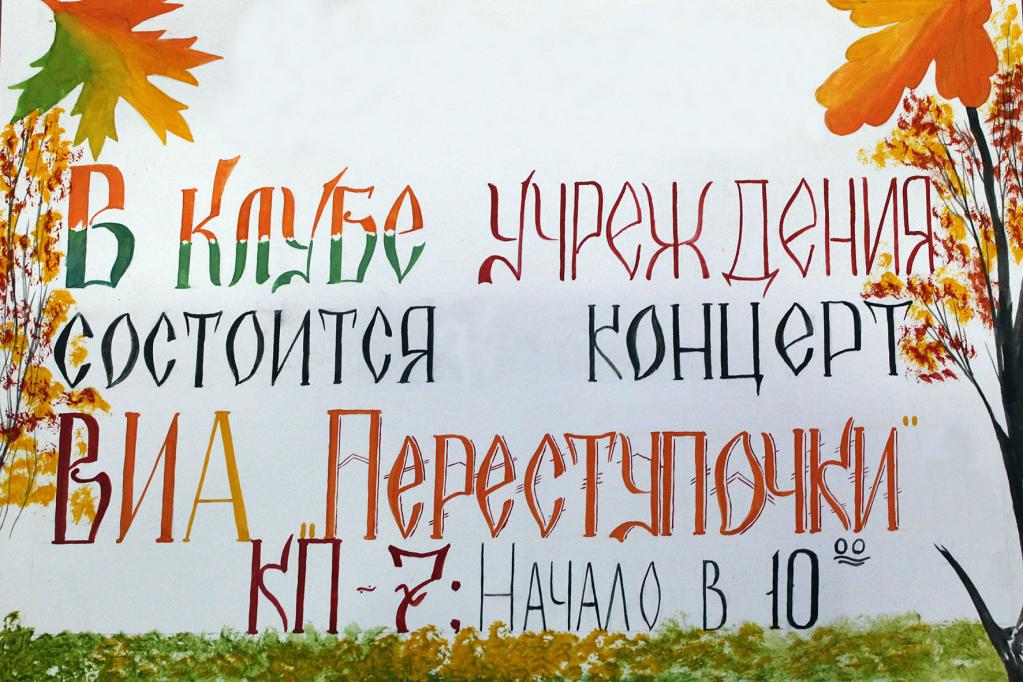 В КЛУБЕ УЧРЕЖДЕНИЯ
СОСТОИТСЯ КОНЦЕРТ
ВИА „ПЕРЕСТУПОЧКИ"
КП-7; НАЧАЛО В 10⁰⁰